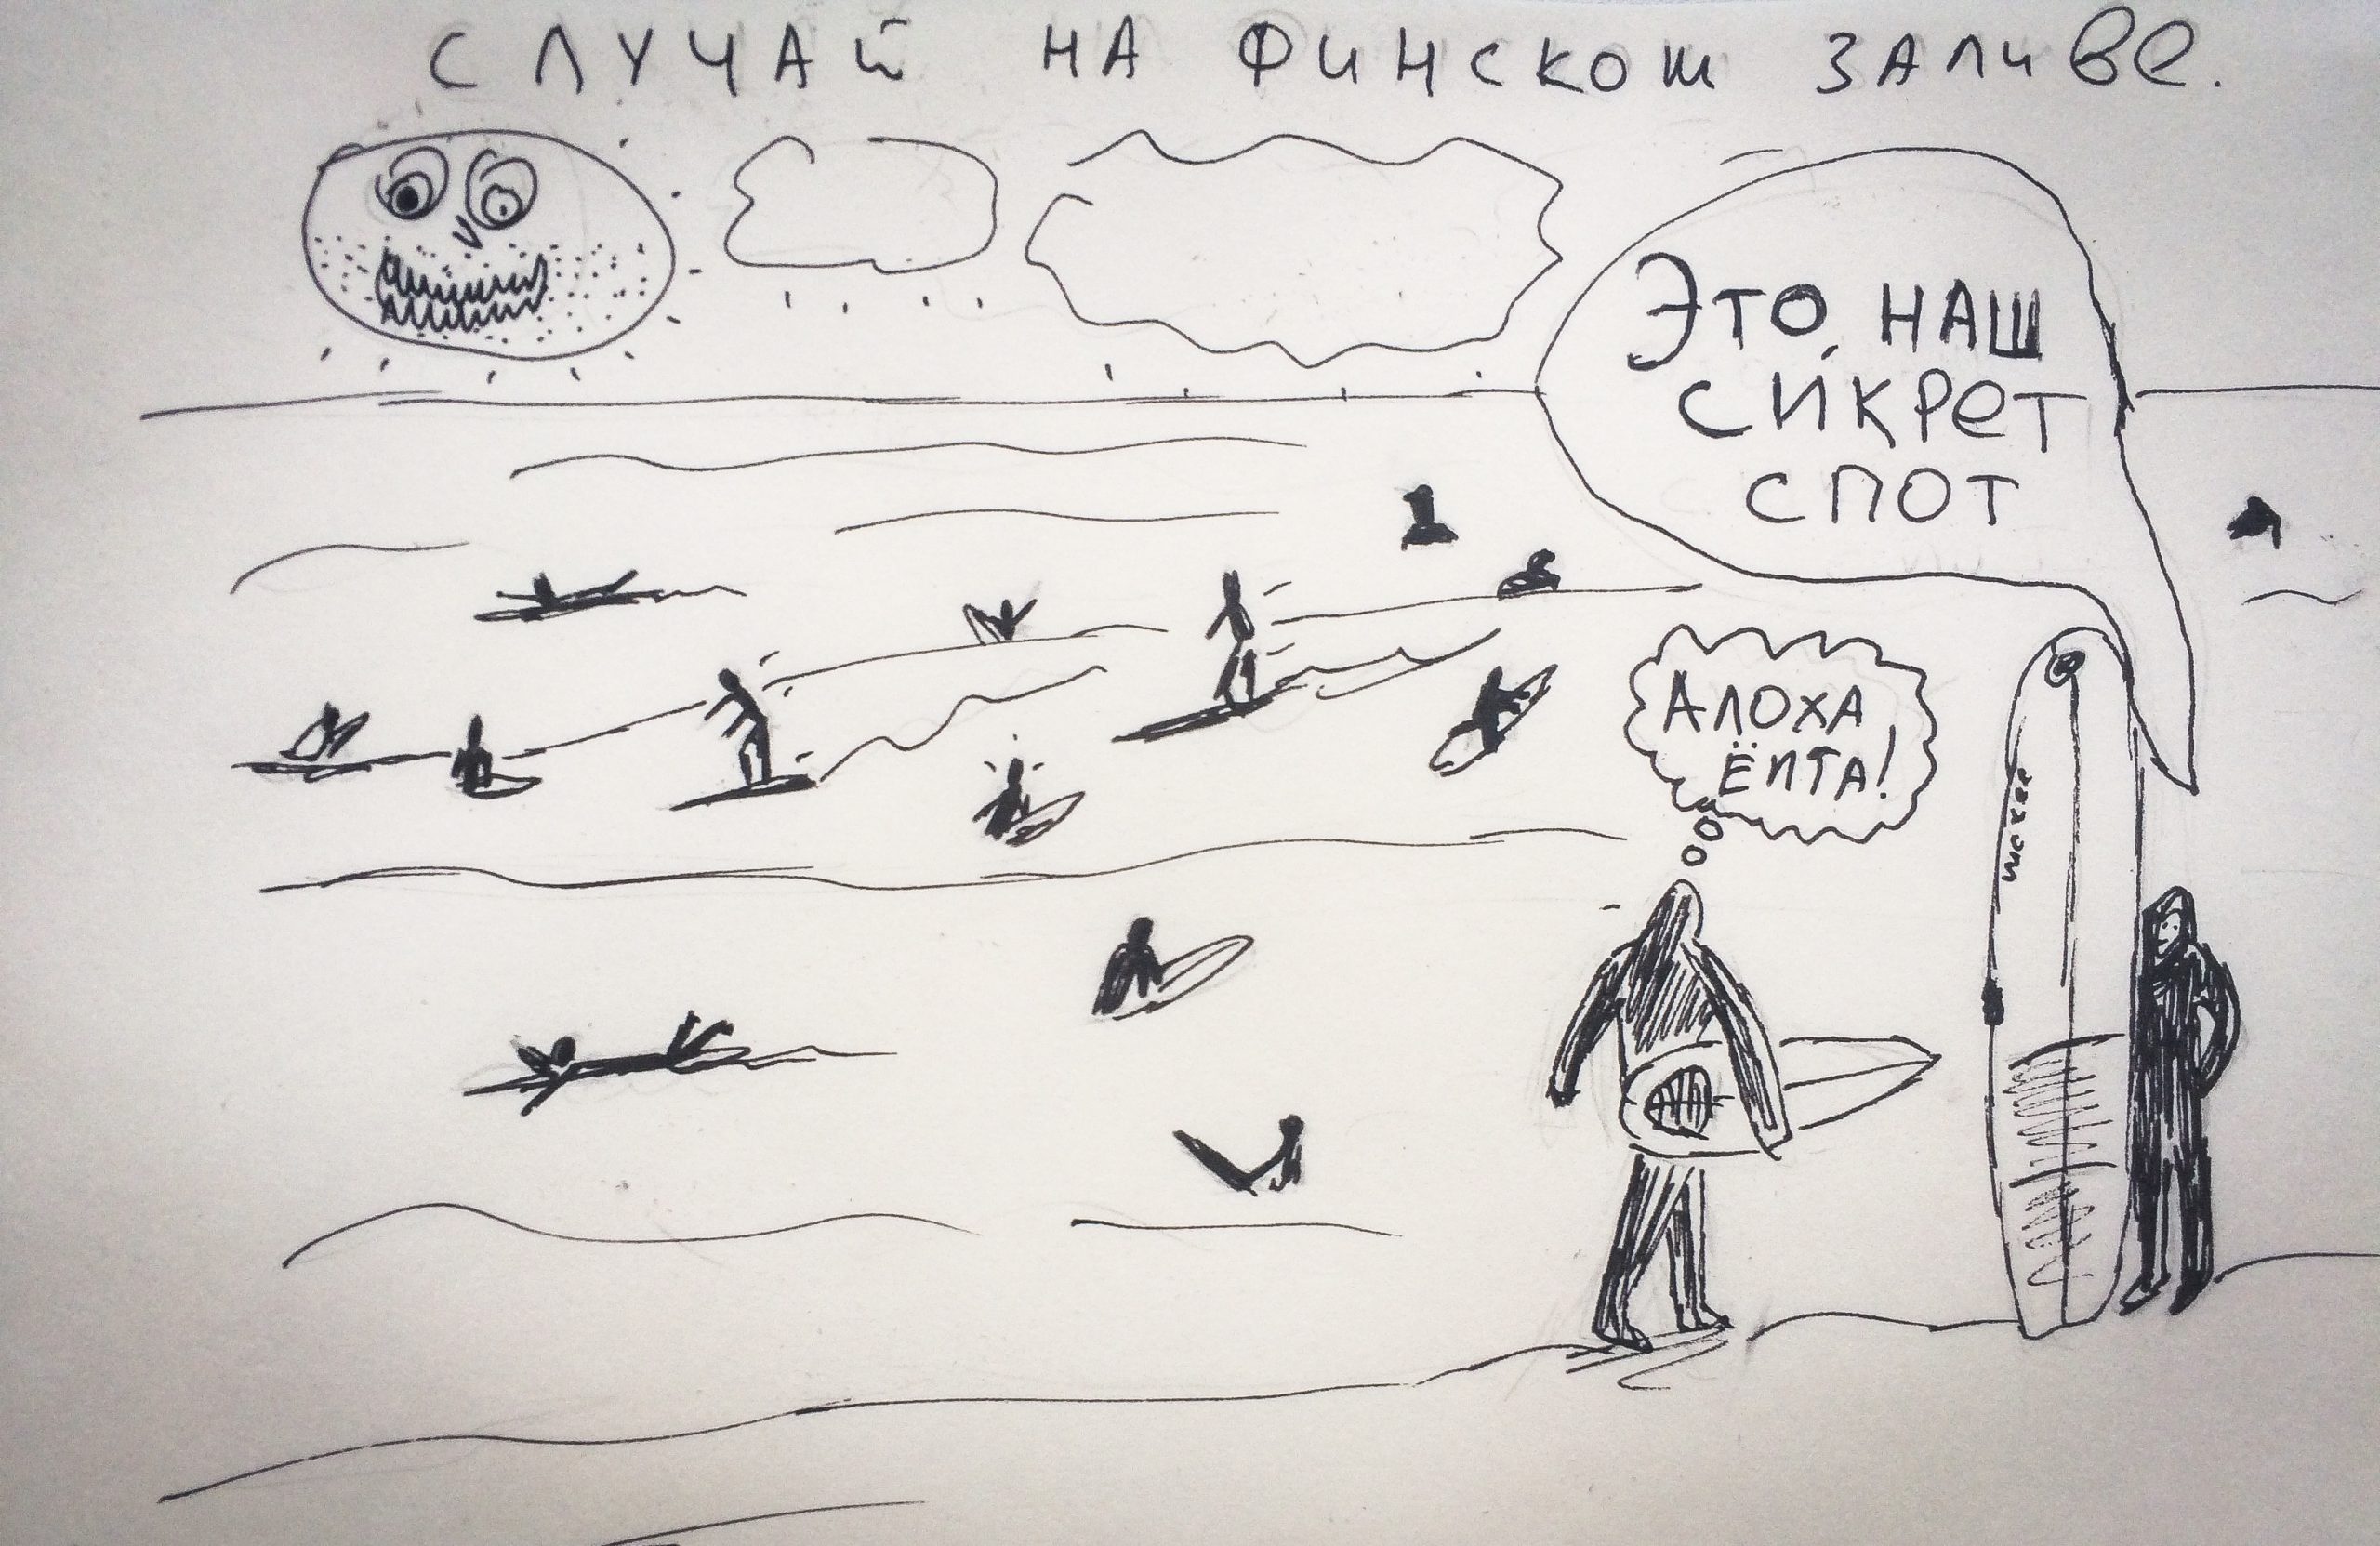 СЛУЧАЙ НА ФИНСКОМ ЗАЛИВЕ.
ЭТО, НАШ
СИКРЕТ
СПОТ
АЛОХА
ЁПТА!